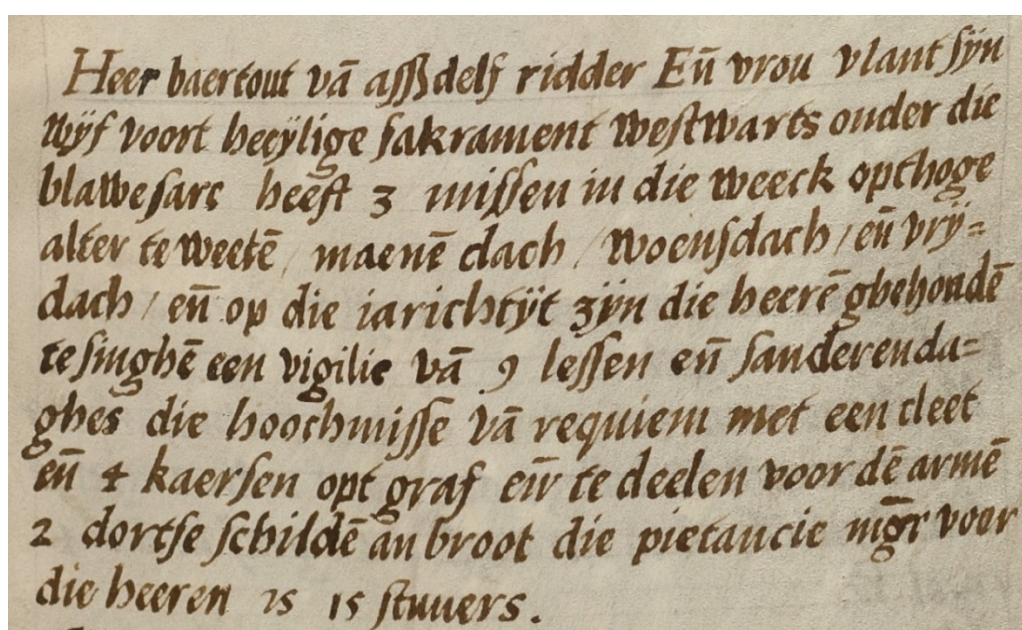 Heer baertout vā assdelf ridder Eñ vrou vlant sÿn
wÿf voort heeÿlige sakrament westwarts onder die
blawe sarc heeft 3 missen in die weeck opthoge
alter te weetē / maenē dach / woensdach / eñ vrÿ=
dach / eñ op die iarichtÿt zÿn die heerē ghehondē
te singhē een vigilie vā 9 lessen eñ sanderenda=
ghes die hoochmisse vā requiem met een cleet
eñ 4 kaersen opt graf eñ te deelen voor dē armē
2 dortse schildē an broot die pietancie mgr voer
die heeren is 15 stuuers .